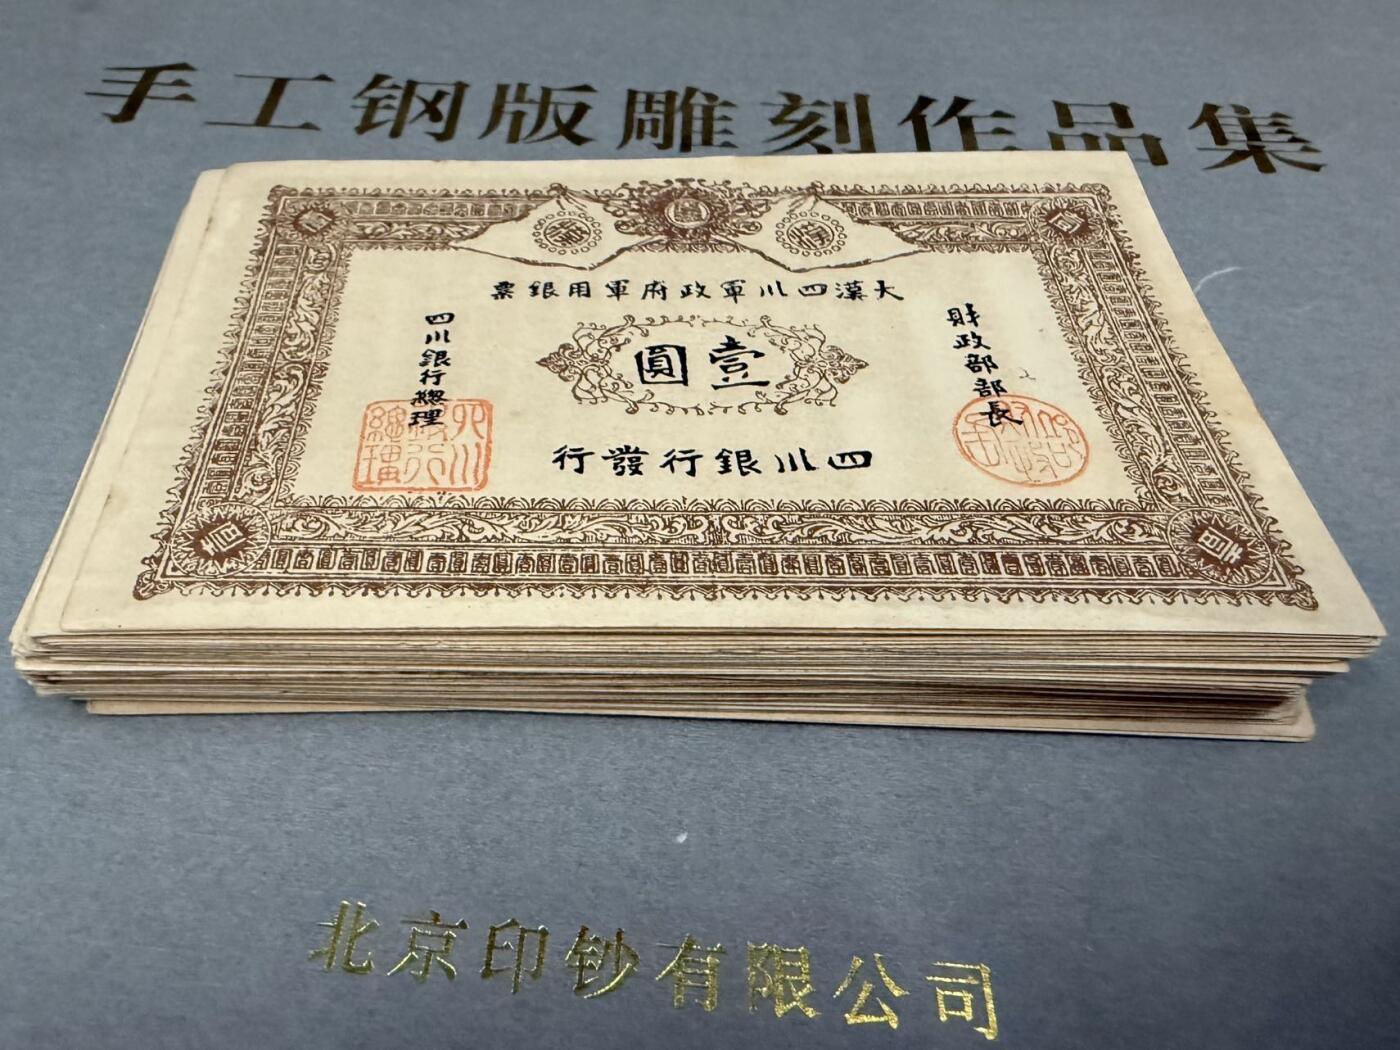 手工钢版雕刻作品集
大漢四川軍政府軍用銀票
財政部部長
壹圓
四川銀行總理
四川銀行發行
北京印钞有限公司